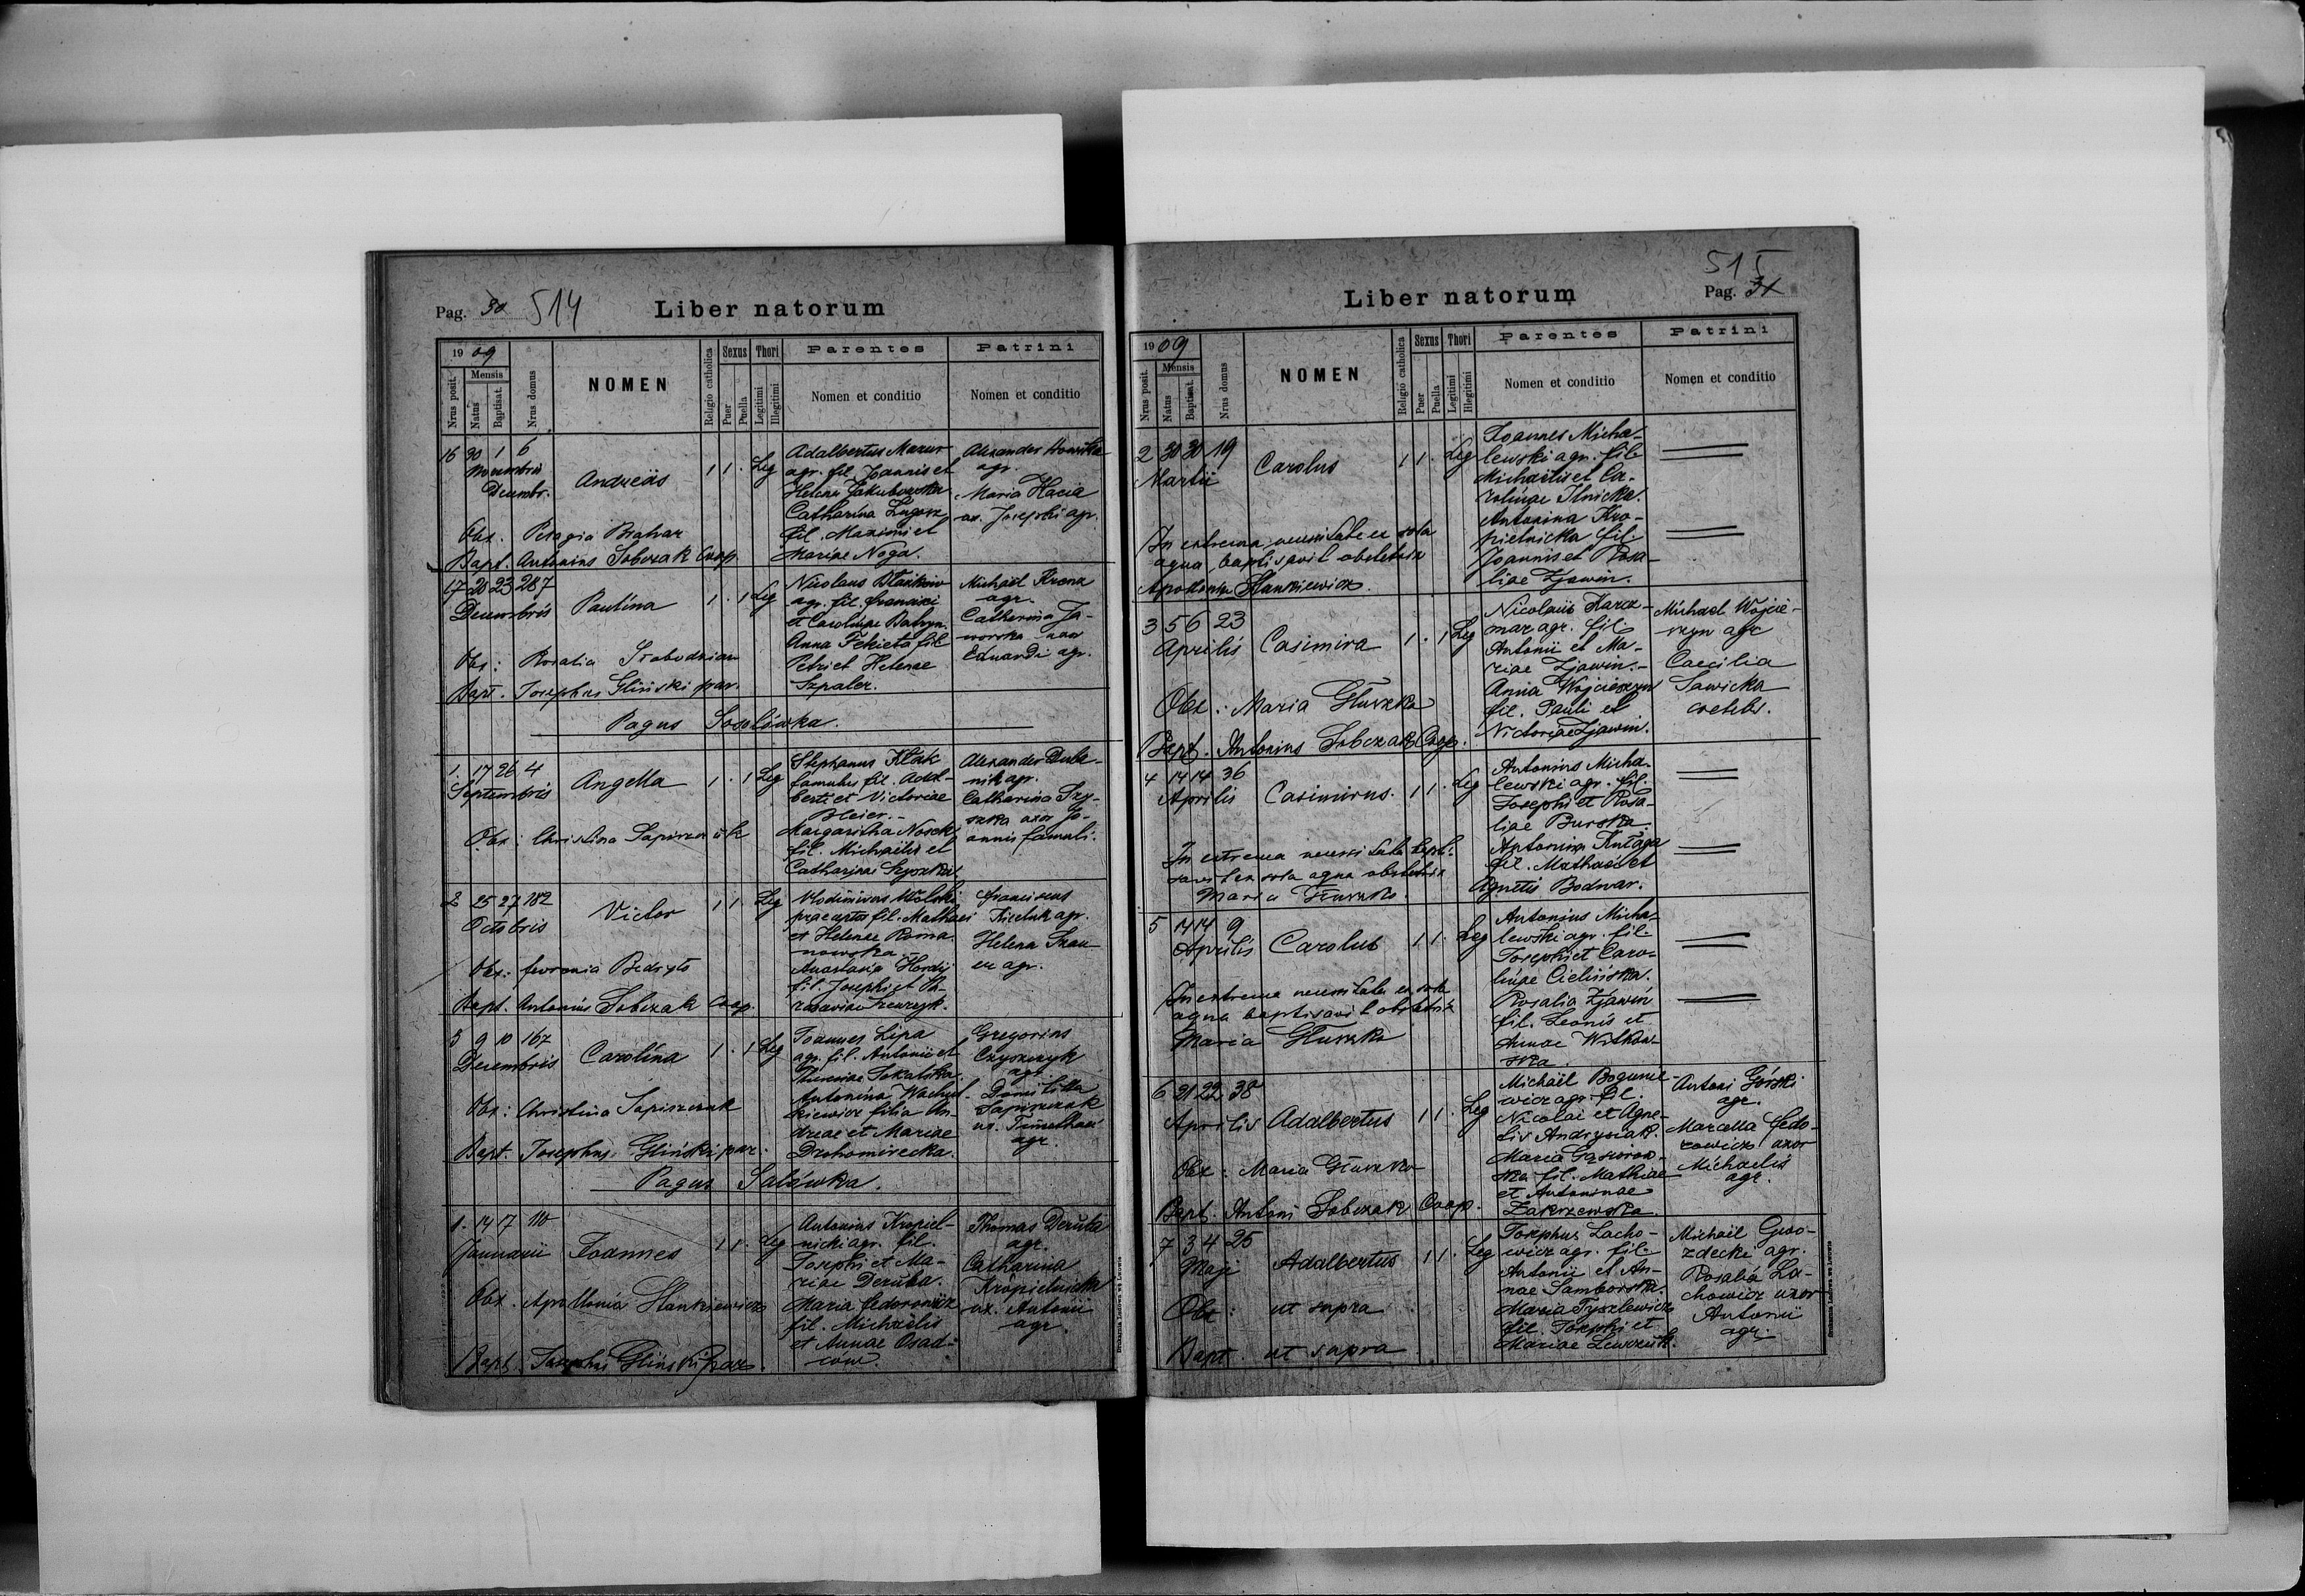 Pag. 30 514 Liber natorum
1909
Nrus posit.
Mensis
Natus
Baptisat.
Nrus domus
NOMEN
Religio catholica
Sexus
Puer
Puella
Thori
Legitimi
Illegitimi
Parentes
Nomen et conditio
Patrini
Nomen et conditio
16 30 1 6
Novembris
Decembr.
Andreas
1 1 . Leg
Adalbertus Mazur
agr. fil. Joannis et
Helena Jakubowska
Catharina
fil. Maximi et
Mariae Noga.
Alexander
agr.
Maria Hacia
ux. Josephi agr.
Obx. Pelagia
Bapt. Antonius Sobczak Coop.
17 20 23 287
Decembris
Paulina
1 . 1 Leg
Nicolaus
agr. fil. Francisci
et Carolinae
Anna Fekieta fil.
Petri et Helenae
Szpaler.
Michael
agr.
Catharina Ja-
worska uxor
Eduardi agr.
Obx: Rosalia
Bapt. Josephus Gliński par.
Pagus Sosolówka.
1. 17 26 4
Septembris
Angella
1 . 1 Leg
Stephanus Klak
famulus fil. Adal-
berti et Victoriae
Margaritha Nosek
fil. Michaelis et
Catharinae Szyszka
Alexander Dube-
nik agr.
Catharina Szy-
szka uxor Jo-
annis famuli.
Obx: Christina
2 25 27 182
Octobris
Victor
1 1 . Leg
Vlodimirus
praeceptor fil. Mathaei
et Helenae Roma-
nowska
Anastasia Hordij
fil. Josephi et
Franciscus
agr.
Helena
agr.
Obx: Fevronia
Bapt. Antonius Sobczak Coop.
3 9 10 167
Decembris
Carolina
1 . 1 Leg
Joannes Lipa
agr. fil. Antonii et
Theresiae
Antonina
kiewicz filia An-
dreae et Mariae
Drohomirecka.
Gregorius
Czyszczyk
agr.
Domitilla
Sapiszczak
ux. Timothaei
agr.
Obx: Christina Sapiszczak
Bapt. Josephus Gliński par.
Pagus Salówka.
1. 14 17 110
Januarii
Joannes
1 1 . Leg
Antonius Kropiel-
nicki agr. fil.
Josephi et Ma-
riae Deruta.
Maria Fedorowicz
fil. Michaelis
et Annae Osad-
ców.
Thomas Deruta
agr.
Catharina
Kropielnicka
ux. Antonii
agr.
Obx. Apollonia Hankiewicz
Bapt. Josephus Gliński par.
Drukarnia Ludowa we Lwowie
515
Liber natorum Pag. 31
1909
Nrus posit.
Mensis
Natus
Baptisat.
Nrus domus
NOMEN
Religio catholica
Sexus
Puer
Puella
Thori
Legitimi
Illegitimi
Parentes
Nomen et conditio
Patrini
Nomen et conditio
2 30 30 19
Martii
Carolus
1 1 . Leg
Joannes Micha-
lewski agr. fil.
Michaelis et Ca-
rolinae Ilnicka.
Antonina Kro-
pielnicka fil.
Joannis et Rosa-
liae Zjawin.
In extrema necessitate ex sola
aqua baptisavit obstetrix
Apollonia Hankiewicz.
3 5 6 23
Aprilis
Casimira
1 . 1 Leg
Nicolaus Karcz-
mar agr. fil.
Antonii et Ma-
riae Zjawin.-
Anna Wojcieszyn
fil. Pauli et
Victoriae Zjawin.
Michael Wojcie-
szyn agr
Caecilia
Sawicka
coelebs.
Obx: Maria Głuszko
Bapt. Antonius Sobczak Coop.
4 14 14 36
Aprilis
Casimirus.
1 1 . Leg
Antonius Micha-
lewski agr. fil.
Josephi et Rosa-
liae Burska.
Antonina Kułaga
fil. Mathaei et
Agnetis Bodnar.
In extrema necessitate bapti-
savit ex sola aqua obstetrix
Maria Głuszko.
5 14 14 9
Aprilis
Carolus
1 1 . Leg
Antonius Micha-
lewski agr. fil.
Josephi et Caro-
linae Cielińska.
Rosalia Zjawin
fil. Leonis et
Annae Witkow-
ska
In extrema necessitate ex sola
aqua baptisavit obstetrix
Maria Głuszko
6 21 22 38
Aprilis
Adalbertus
1 1 . Leg
Michael Bogune-
wicz agr. fil.
Nicolai et Agne-
tis Andrysiak.
Maria Gąsiorow-
ska fil. Mathiae
et Antoninae
Zakrzewska.
Antoni Górski
agr.
Marcella Fedo-
rowicz uxor
Michaelis
agr.
Obx: Maria Głuszko
Bapt. Antoni Sobczak Coop.
7 3 4 25
Maji
Adalbertus
1 1 . Leg
Josephus Lacho-
wicz agr. fil.
Antonii et An-
nae Samborska.
Maria Tyszkiewicz
fil. Josephi et
Mariae Lewczuk.
Michael Gwo-
zdecki agr.
Rosalia La-
chowicz uxor
Antonii
agr.
Obx: ut supra
Bapt. ut supra
Drukarnia Ludowa we Lwowie